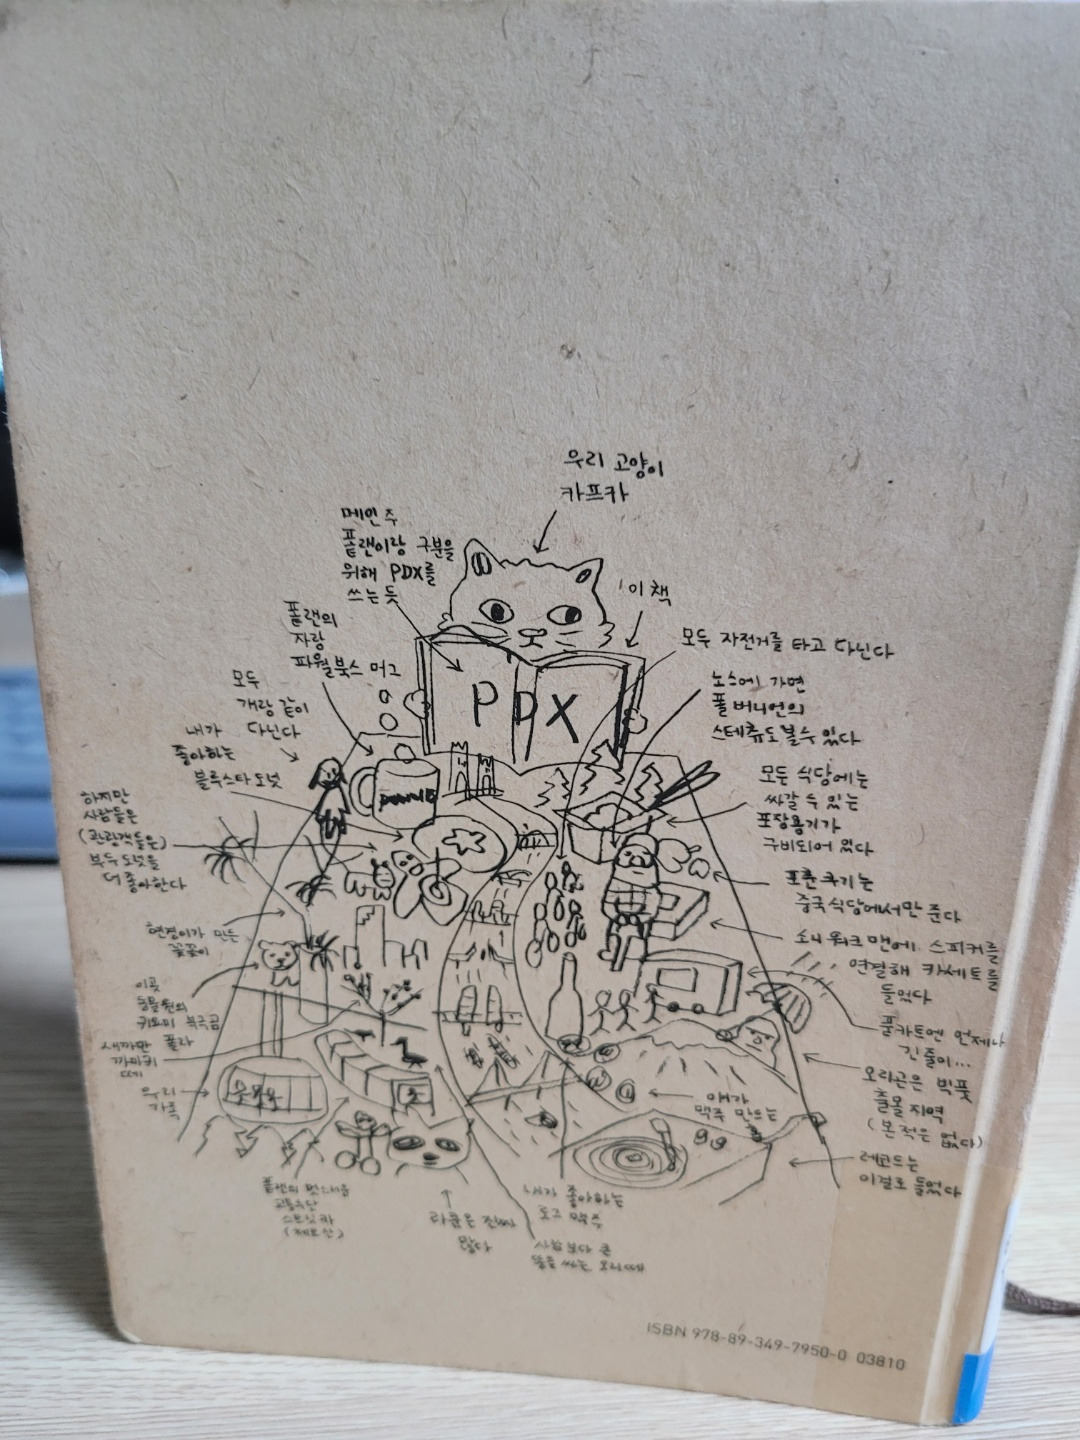 우리 고양이
카프카
메인 주
폴랜이랑 구분을
위해 PDX를
쓰는 듯
이 책
폴랜의
자랑
파월북스 머그
모두 자전거를 타고 다닌다
모두
개랑 같이
다닌다
노스에 가면
폴 버니언의
스테츄도 볼 수 있다
내가
좋아하는
블루스타 도넛
PDX
모두 식당에는
싸갈 수 있는
포장용기가
구비되어 있다
하지만
사람들은
(관광객들은)
부두 도넛을
더 좋아한다
포춘쿠키는
중국식당에서만 준다
현경이가 만든
꽃꽂이
소니 워크맨에 스피커를
연결해 카세트를
들었다
이곳
동물원의
귀요미 북극곰
푸드카트엔 언제나
긴 줄이...
새까만
까마귀
떼
오리곤은 빅풋
출몰 지역
(본 적은 없다)
우리
가족
얘가
맥주 만드는
레코드는
이걸로 들었다
폴랜의 멋
교통수단
스트릿카
라쿤은 진짜
많다
내가 좋아하는
로그 맥주
사람보다 큰
똥을 싸는 오리떼
ISBN 978-89-349-7950-0 03810